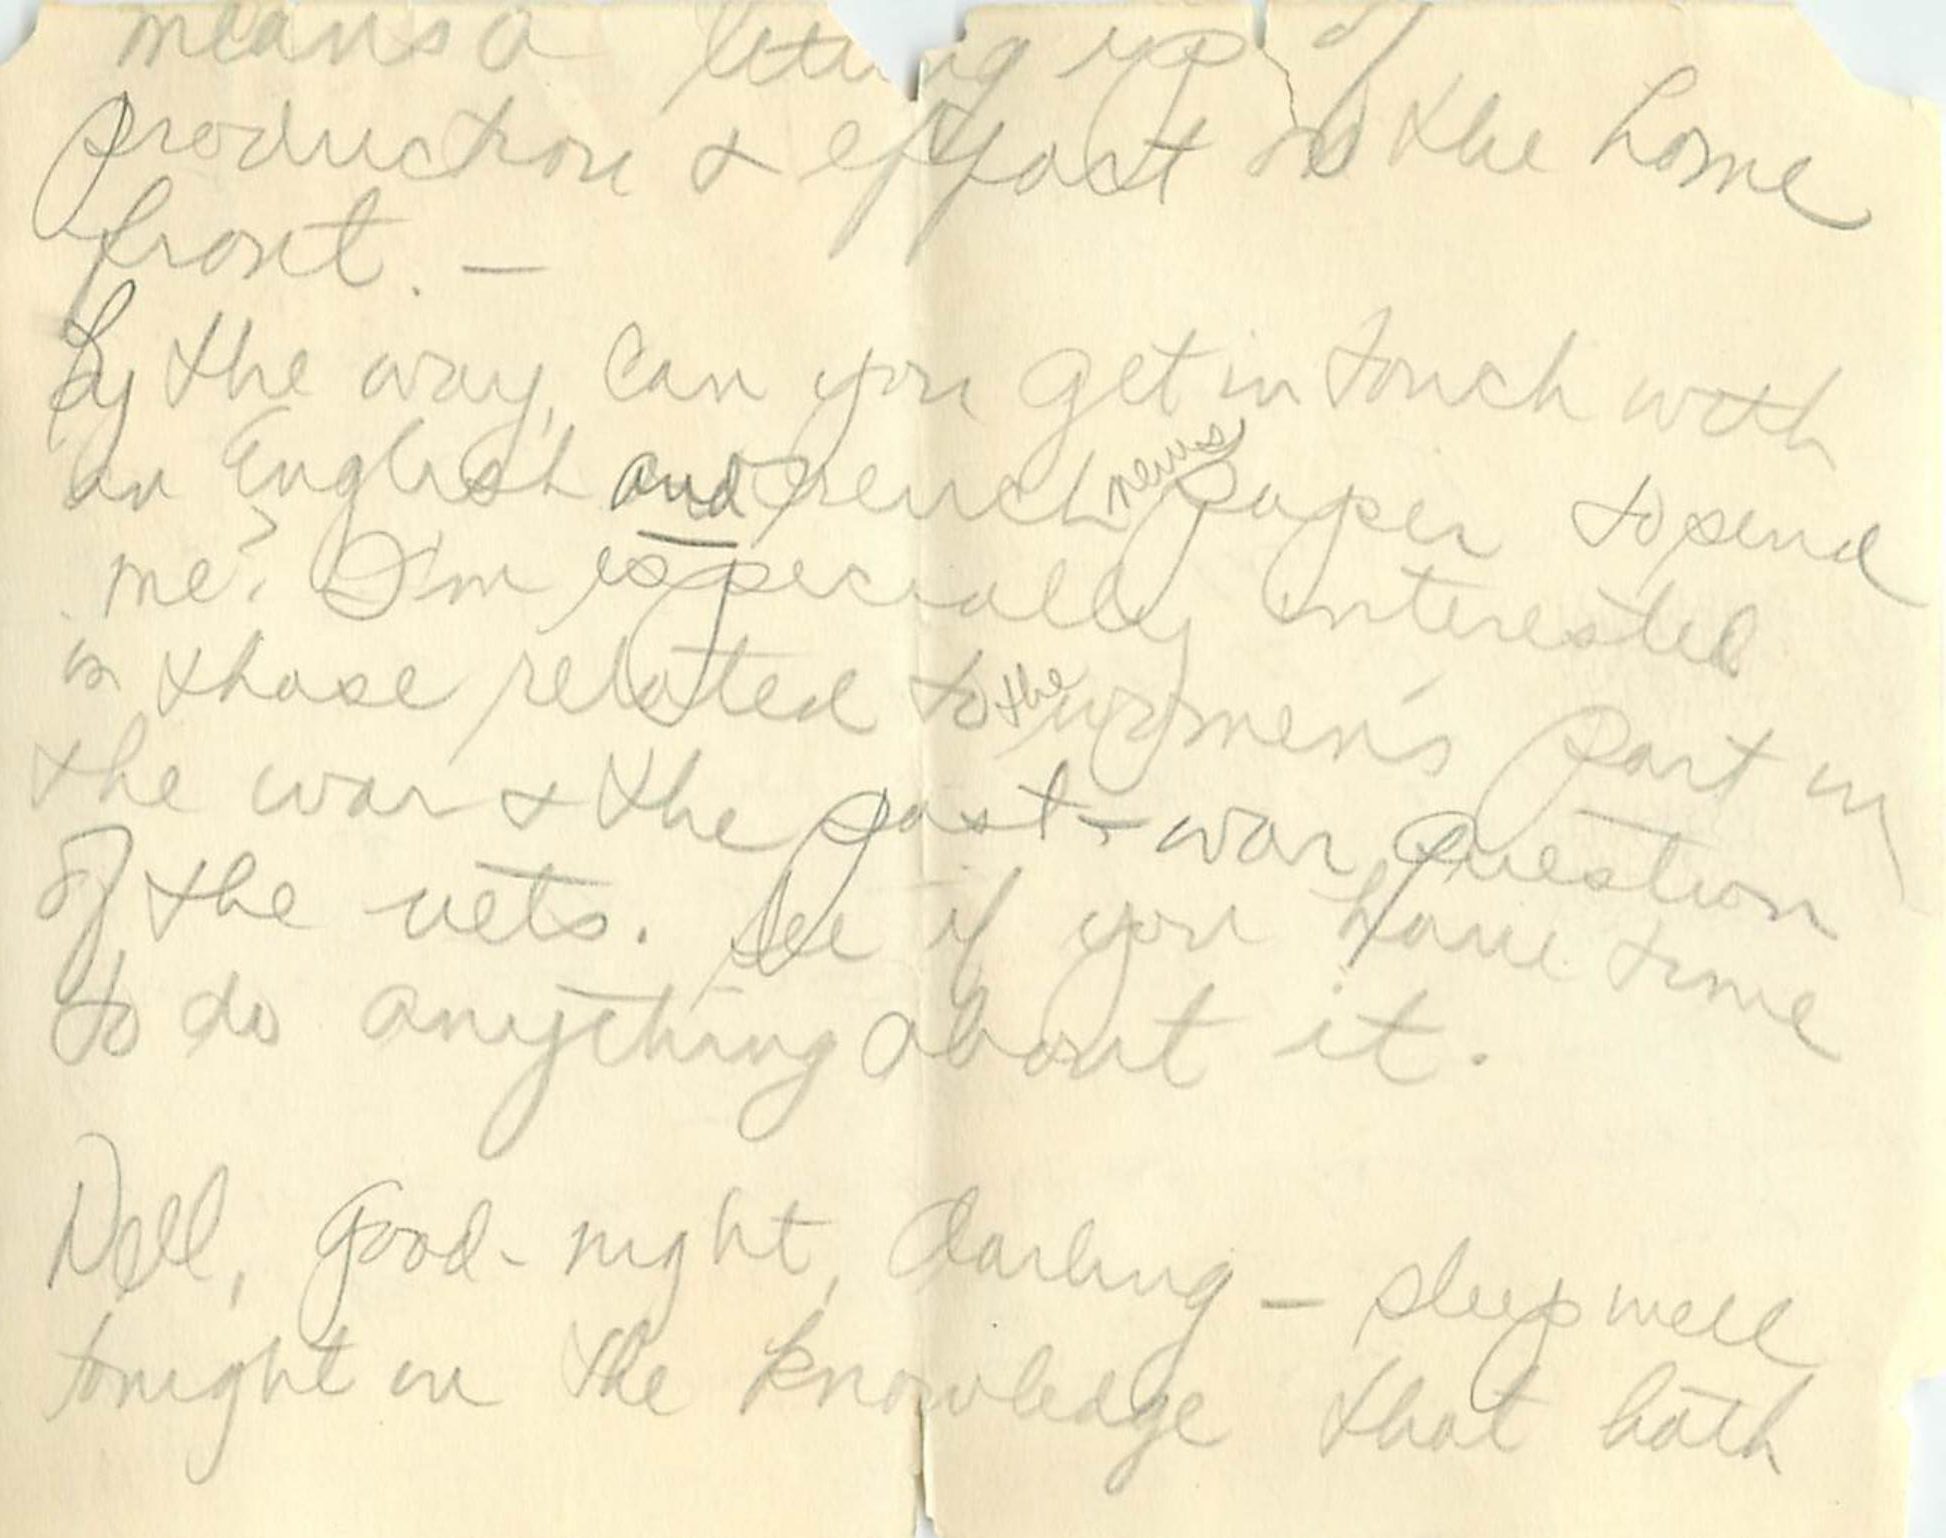 means a letting up of
production & effort on the home
front. —
By the way, can you get in touch with
an English and French news paper to send
me? I'm especially interested
in those related to the women's part in
the war & the post-war question
of the vets. See if you have time
to do anything about it.
Well, good-night, darling — sleep well
tonight in the knowledge that both